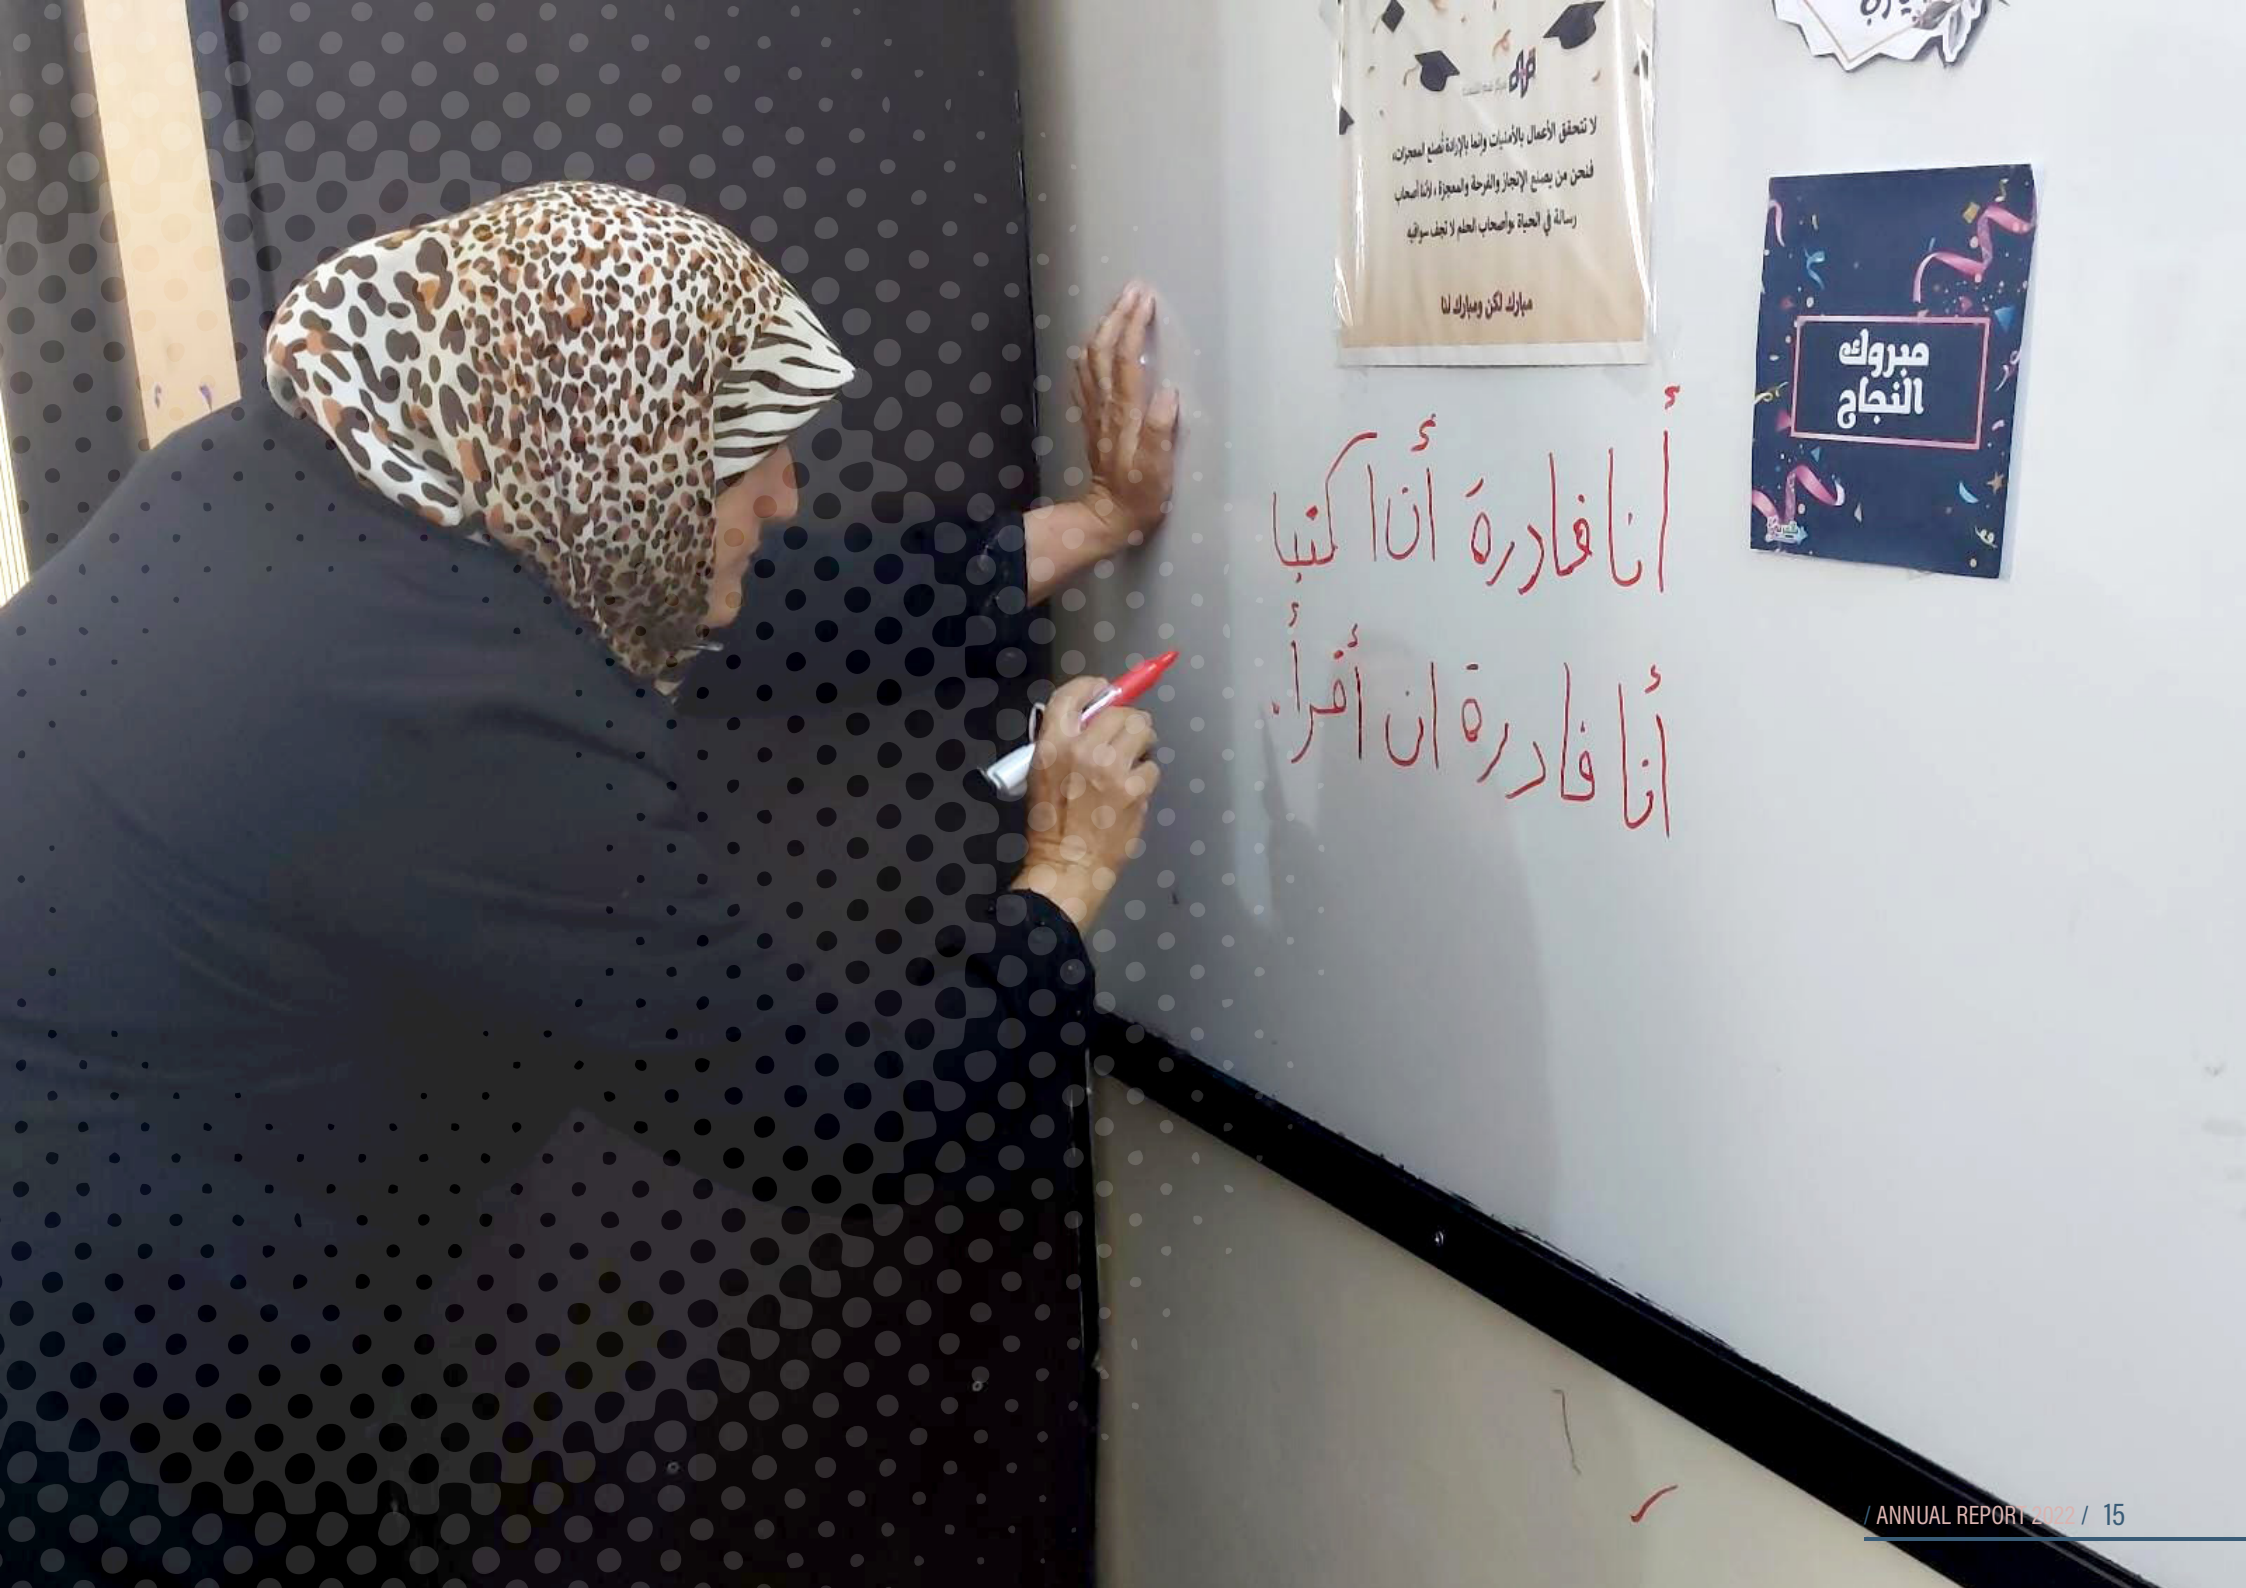 لا تتحقق الأعمال بالأمنيات وإنما بالإرادة تُصنع المعجزات،
فنحن من يصنع الإنجاز والفرحة والمعجزة ، لأننا أصحاب
رسالة في الحياة ،وأصحاب الحلم لا تجف سواقيه
مبارك لكن ومبارك لنا
مبروك
النجاح
أنا قادرة أن اكتب
أنا قادرة ان أقرأ.
/ ANNUAL REPORT 2022 / 15